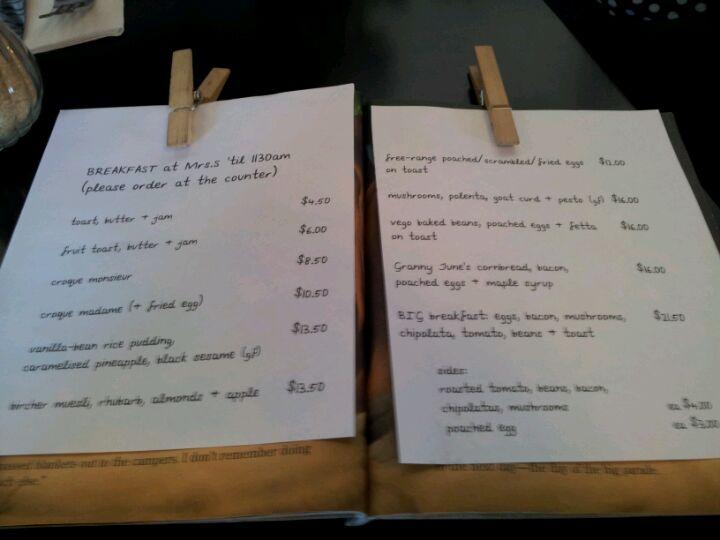 BREAKFAST at Mrs.S 'til 1130am
(please order at the counter)
toast, butter + jam $4.50
fruit toast, butter + jam $6.00
croque monsieur $8.50
croque madame (+ fried egg) $10.50
vanilla-bean rice pudding,
caramelised pineapple, black sesame (gf) $13.50
bircher muesli, rhubarb, almonds + apple $13.50
free-range poached/scrambled/fried eggs $12.00
on toast
mushrooms, polenta, goat curd + pesto (gf) $16.00
vego baked beans, poached eggs + fetta $16.00
on toast
Granny June's cornbread, bacon, $16.00
poached eggs + maple syrup
BIG breakfast: eggs, bacon, mushrooms, $21.50
chipolata, tomato, beans + toast
sides:
roasted tomato, beans, bacon,
chipolatas, mushrooms ea $4.00
poached egg ea $3.00
blankets out to the campers. I don't remember doing
the big parade.